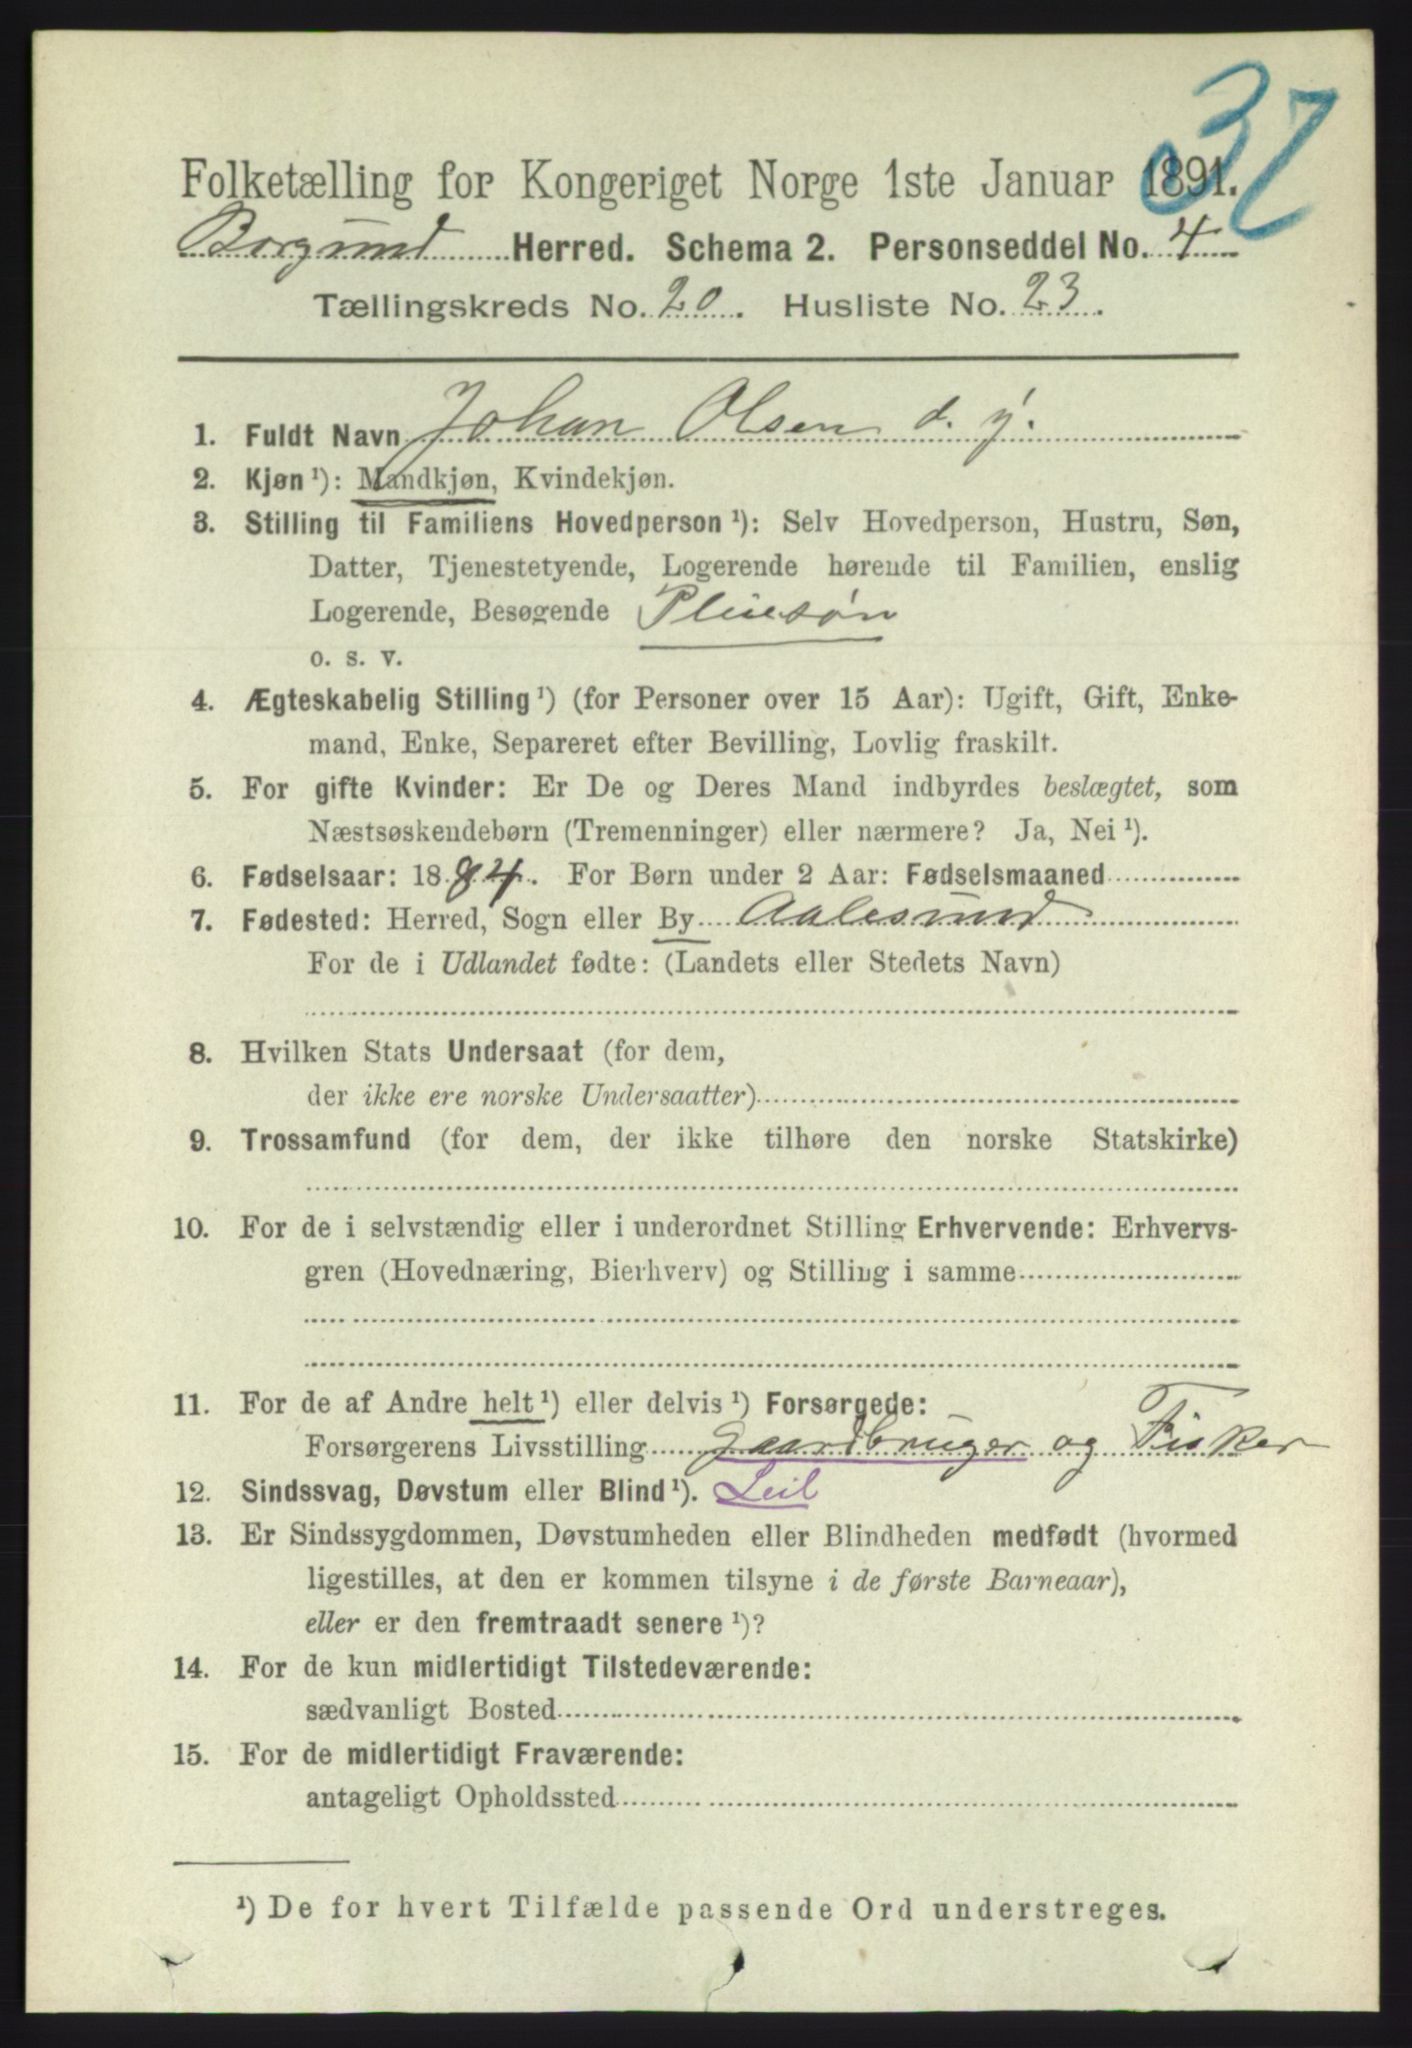 37
Folketælling for Kongeriget Norge 1ste Januar 1891.
Borgund Herred. Schema 2. Personseddel No. 4
Tællingskreds No. 20. Husliste No. 23.
1. Fuldt Navn Johan Olsen d. y.
2. Kjøn ¹): Mandkjøn, Kvindekjøn.
3. Stilling til Familiens Hovedperson ¹): Selv Hovedperson, Hustru, Søn,
Datter, Tjenestetyende, Logerende hørende til Familien, enslig
Logerende, Besøgende Pleiesøn
o. s. v.
4. Ægteskabelig Stilling ¹) (for Personer over 15 Aar): Ugift, Gift, Enke-
mand, Enke, Separeret efter Bevilling, Lovlig fraskilt.
5. For gifte Kvinder: Er De og Deres Mand indbyrdes beslægtet, som
Næstsøskendebørn (Tremenninger) eller nærmere? Ja, Nei ¹).
6. Fødselsaar: 1884. For Børn under 2 Aar: Fødselsmaaned
7. Fødested: Herred, Sogn eller By Aalesund
For de i Udlandet fødte: (Landets eller Stedets Navn)
8. Hvilken Stats Undersaat (for dem,
der ikke ere norske Undersaatter)
9. Trossamfund (for dem, der ikke tilhøre den norske Statskirke)
10. For de i selvstændig eller i underordnet Stilling Erhvervende: Erhvervs-
gren (Hovednæring, Bierhverv) og Stilling i samme
11. For de af Andre helt ¹) eller delvis ¹) Forsørgede:
Forsørgerens Livsstilling gaardbruger og Fisker
12. Sindssvag, Døvstum eller Blind ¹). Leil
13. Er Sindssygdommen, Døvstumheden eller Blindheden medfødt (hvormed
ligestilles, at den er kommen tilsyne i de første Barneaar),
eller er den fremtraadt senere ¹)?
14. For de kun midlertidigt Tilstedeværende:
sædvanligt Bosted
15. For de midlertidigt Fraværende:
antageligt Opholdssted
¹) De for hvert Tilfælde passende Ord understreges.